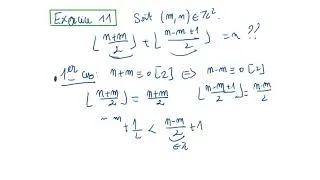 Exercice 11 Soit (m,n) ∈ ℤ².
⌊(n+m)/2⌋ + ⌊(n-m+1)/2⌋ = n ??
1er cas: n+m ≡ 0 [2] ⟺ n-m ≡ 0 [2]
⌊(n+m)/2⌋ = (n+m)/2 ⌊(n-m+1)/2⌋ = (n-m)/2
+ 1/2 < (n-m)/2 + 1
∈ ℤ